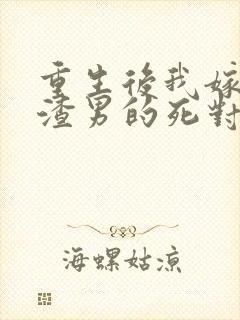 重生後我嫁
渣男的死對
海螺姑涼